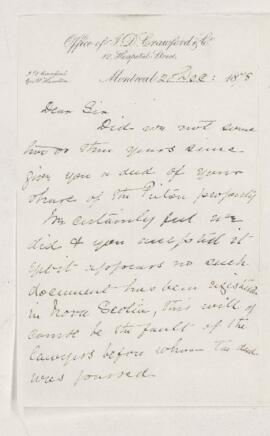 Office of J. D. Crawford & Co
12 Hospital Street.
J. D. Crawford
Montreal 20 Dec: 1878
Dear Sir
Did we not some
two or three years since
give you a deed of your
share of the Picton property
We certainly feel we
did & you accepted it
yet it appears no such
document has been registered
in Nova Scotia, this will of
course be the fault of the
lawyers before whom the deed
was passed